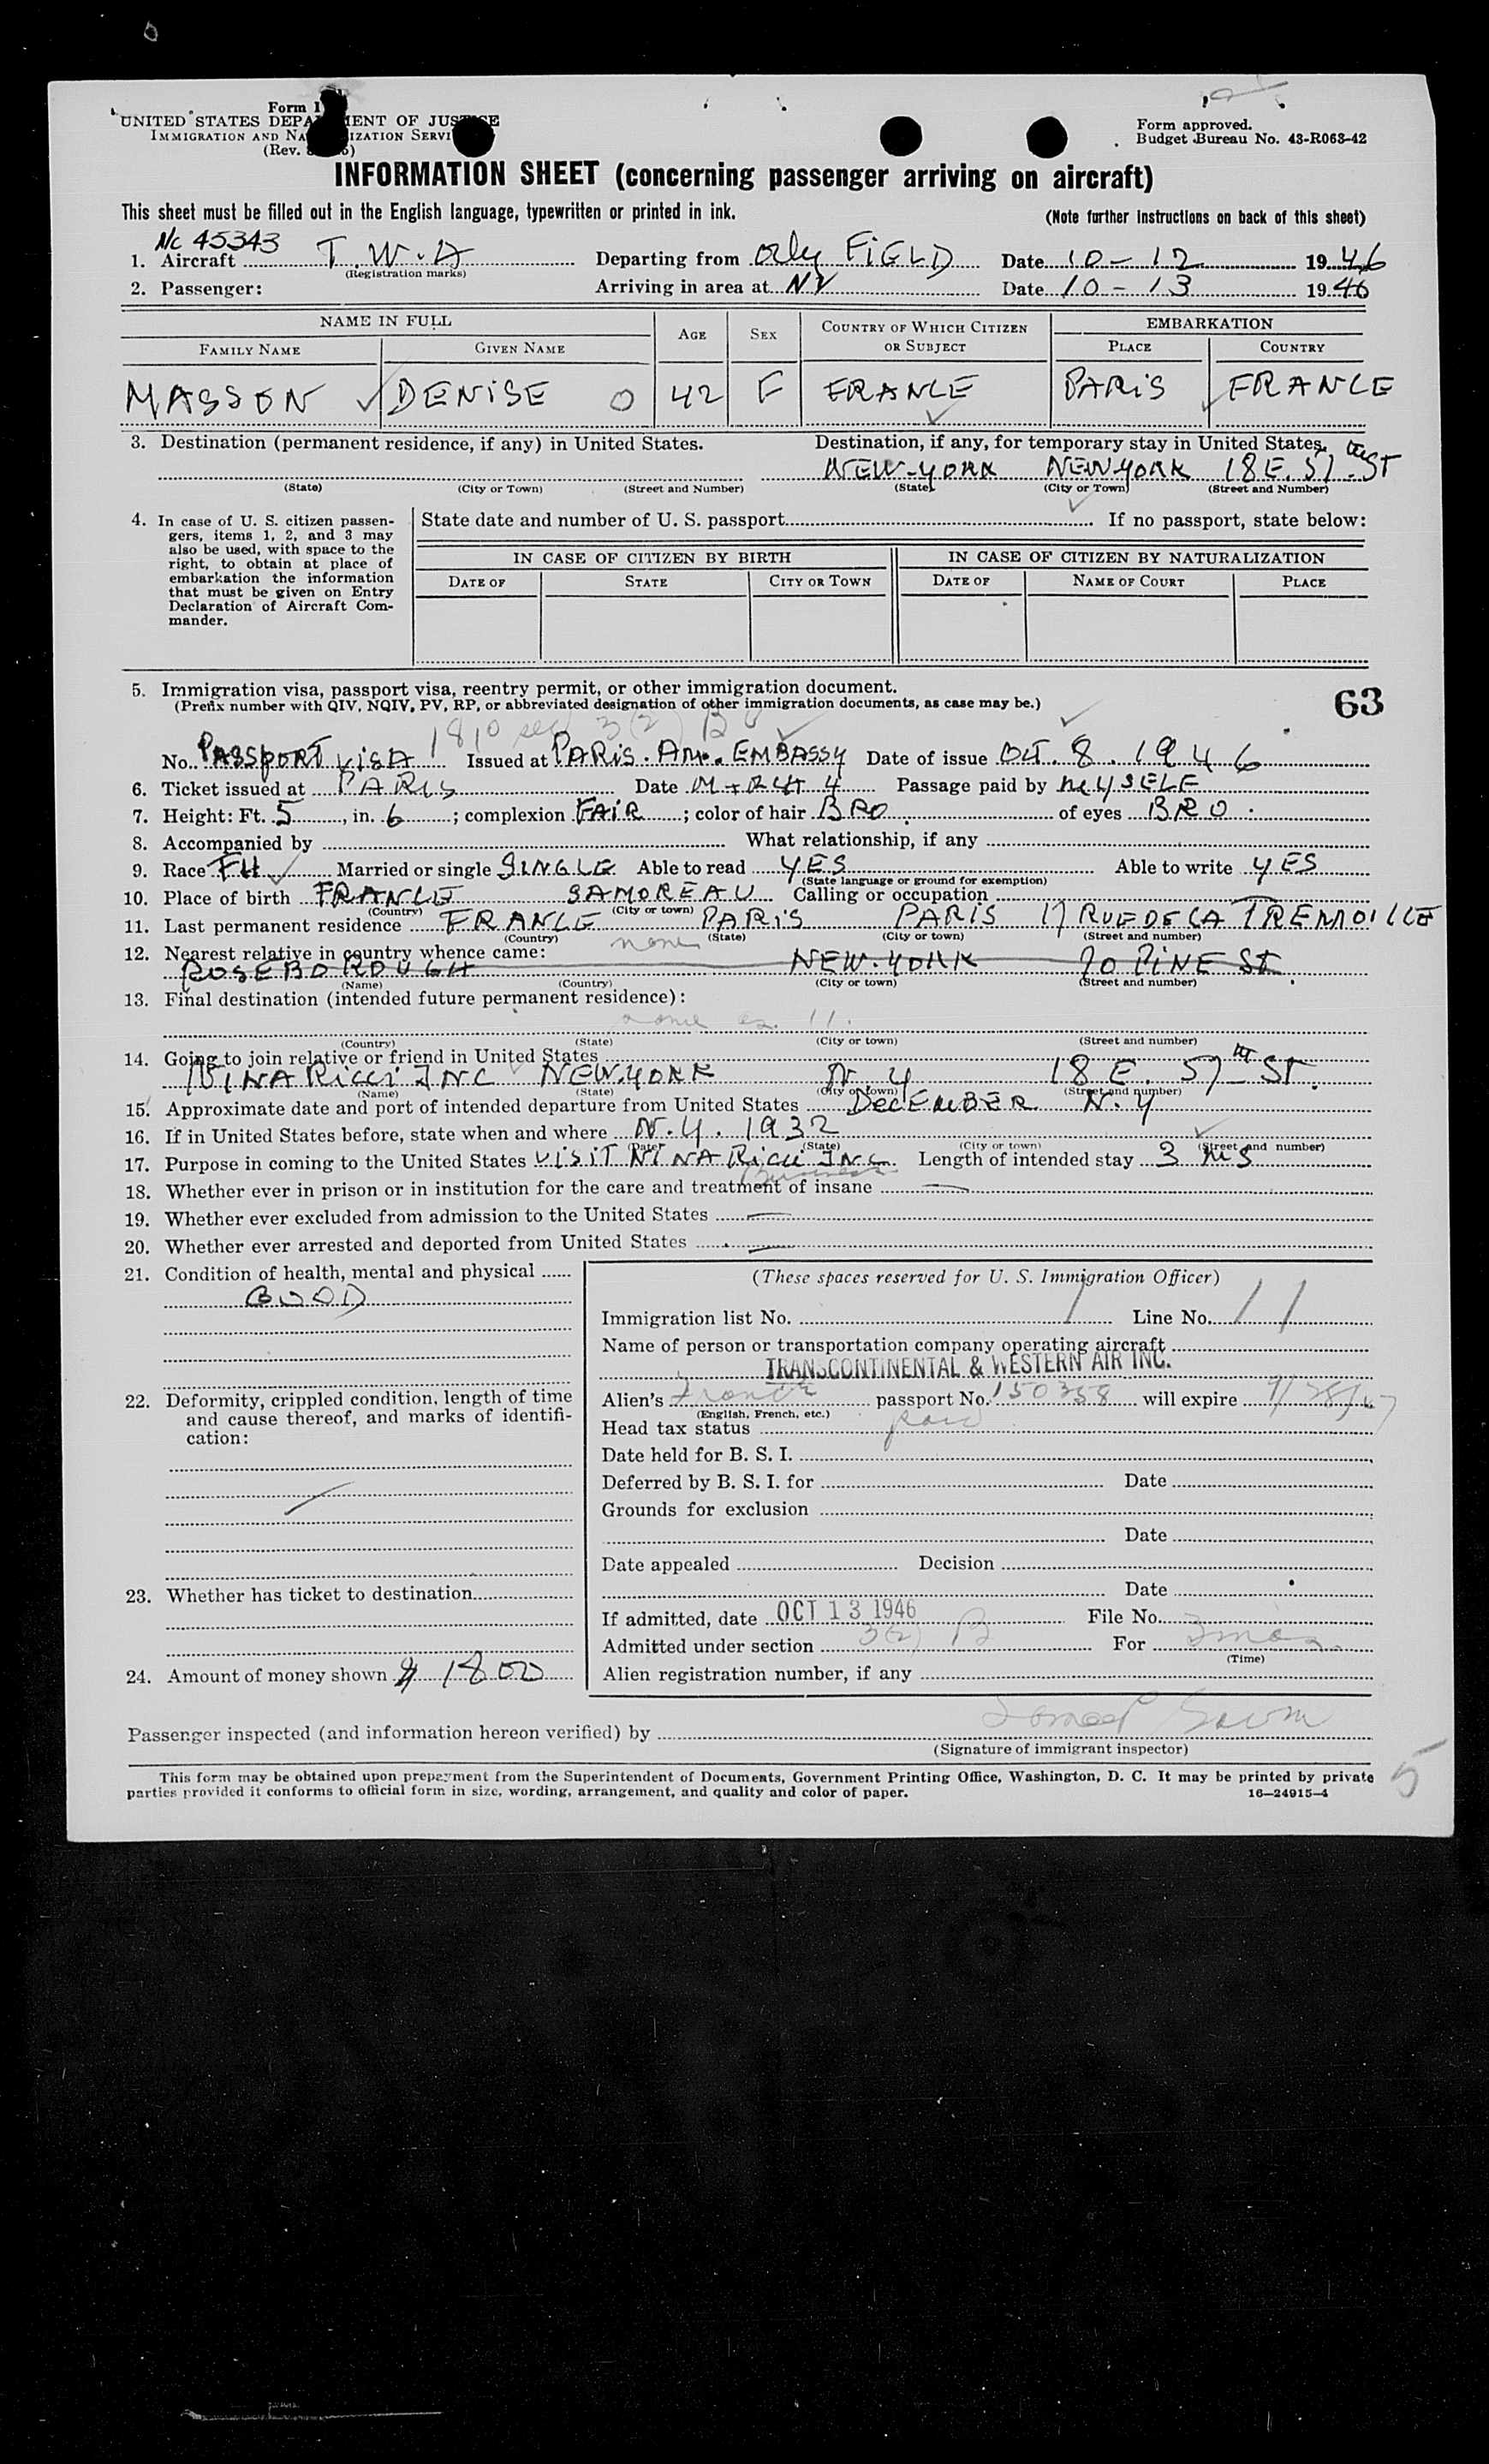 Form I
UNITED STATES DEPARTMENT OF JUSTICE
IMMIGRATION AND NATURALIZATION SERVI
(Rev.
Form approved.
Budget Bureau No. 43-R063-42
INFORMATION SHEET (concerning passenger arriving on aircraft)
This sheet must be filled out in the English language, typewritten or printed in ink.
(Note further instructions on back of this sheet)
Nc 45343
1. Aircraft T.W.A Departing from Orly FiELD Date 10-12 1946
(Registration marks)
2. Passenger: Arriving in area at NY Date 10-13 1946
NAME IN FULL AGE SEX COUNTRY OF WHICH CITIZEN OR SUBJECT EMBARKATION
FAMILY NAME GIVEN NAME PLACE COUNTRY
MASSON DENISE O 42 F FRANCE PARiS FRANCE
3. Destination (permanent residence, if any) in United States. Destination, if any, for temporary stay in United States.
NEW-YORK NEW-YORK 18 E. 57 ST
(State) (City or Town) (Street and Number) (State) (City or Town) (Street and Number)
4. In case of U. S. citizen passengers, items 1, 2, and 3 may also be used, with space to the right, to obtain at place of embarkation the information that must be given on Entry Declaration of Aircraft Commander.
State date and number of U. S. passport If no passport, state below:
IN CASE OF CITIZEN BY BIRTH IN CASE OF CITIZEN BY NATURALIZATION
DATE OF STATE CITY OR TOWN DATE OF NAME OF COURT PLACE
5. Immigration visa, passport visa, reentry permit, or other immigration document.
(Prefix number with QIV, NQIV, PV, RP, or abbreviated designation of other immigration documents, as case may be.)
63
1810 sec 3(2) B
No. PASSPORT ViSA Issued at PARiS. Am. EMBASSY Date of issue OCT. 8. 1946
6. Ticket issued at PARIS Date Passage paid by MYSELF
7. Height: Ft. 5, in. 6; complexion FAiR; color of hair BRO of eyes BRO
8. Accompanied by What relationship, if any
9. Race FH Married or single SINGLE Able to read YES Able to write YES
(State language or ground for exemption)
10. Place of birth FRANCE SAMOREAU Calling or occupation
(Country) (City or town)
11. Last permanent residence FRANCE PARiS PARiS 17 RUE DE LA TREMOILLE
(Country) (State) (City or town) (Street and number)
12. Nearest relative in country whence came: none
ROSEBOROUGH NEW-YORK 70 PiNE ST.
(Name) (Country) (City or town) (Street and number)
13. Final destination (intended future permanent residence):
same as 11.
(Country) (State) (City or town) (Street and number)
14. Going to join relative or friend in United States
NINA RICCI INC NEW-YORK N.Y 18 E. 57 ST.
(Name) (State) (City or town) (Street and number)
15. Approximate date and port of intended departure from United States DECEMBER N.Y
16. If in United States before, state when and where N.Y. 1932
(Date) (State) (City or town) (Street and number)
17. Purpose in coming to the United States ViSiT NINA RICCI INC. Length of intended stay 3 MS
Business
18. Whether ever in prison or in institution for the care and treatment of insane —
19. Whether ever excluded from admission to the United States —
20. Whether ever arrested and deported from United States —
21. Condition of health, mental and physical
GOOD
22. Deformity, crippled condition, length of time and cause thereof, and marks of identification:
23. Whether has ticket to destination
24. Amount of money shown $ 1800
(These spaces reserved for U. S. Immigration Officer)
Immigration list No. 1 Line No. 11
Name of person or transportation company operating aircraft
TRANSCONTINENTAL & WESTERN AIR INC.
Alien's French passport No. 150358 will expire 9/28/47
(English, French, etc.)
Head tax status paid
Date held for B. S. I.
Deferred by B. S. I. for Date
Grounds for exclusion
Date
Date appealed Decision
Date
If admitted, date OCT 13 1946 File No.
Admitted under section 3(2) B For 3 mos.
(Time)
Alien registration number, if any
Passenger inspected (and information hereon verified) by
(Signature of immigrant inspector)
This form may be obtained upon prepayment from the Superintendent of Documents, Government Printing Office, Washington, D. C. It may be printed by private
parties provided it conforms to official form in size, wording, arrangement, and quality and color of paper.
16—24915-4
5